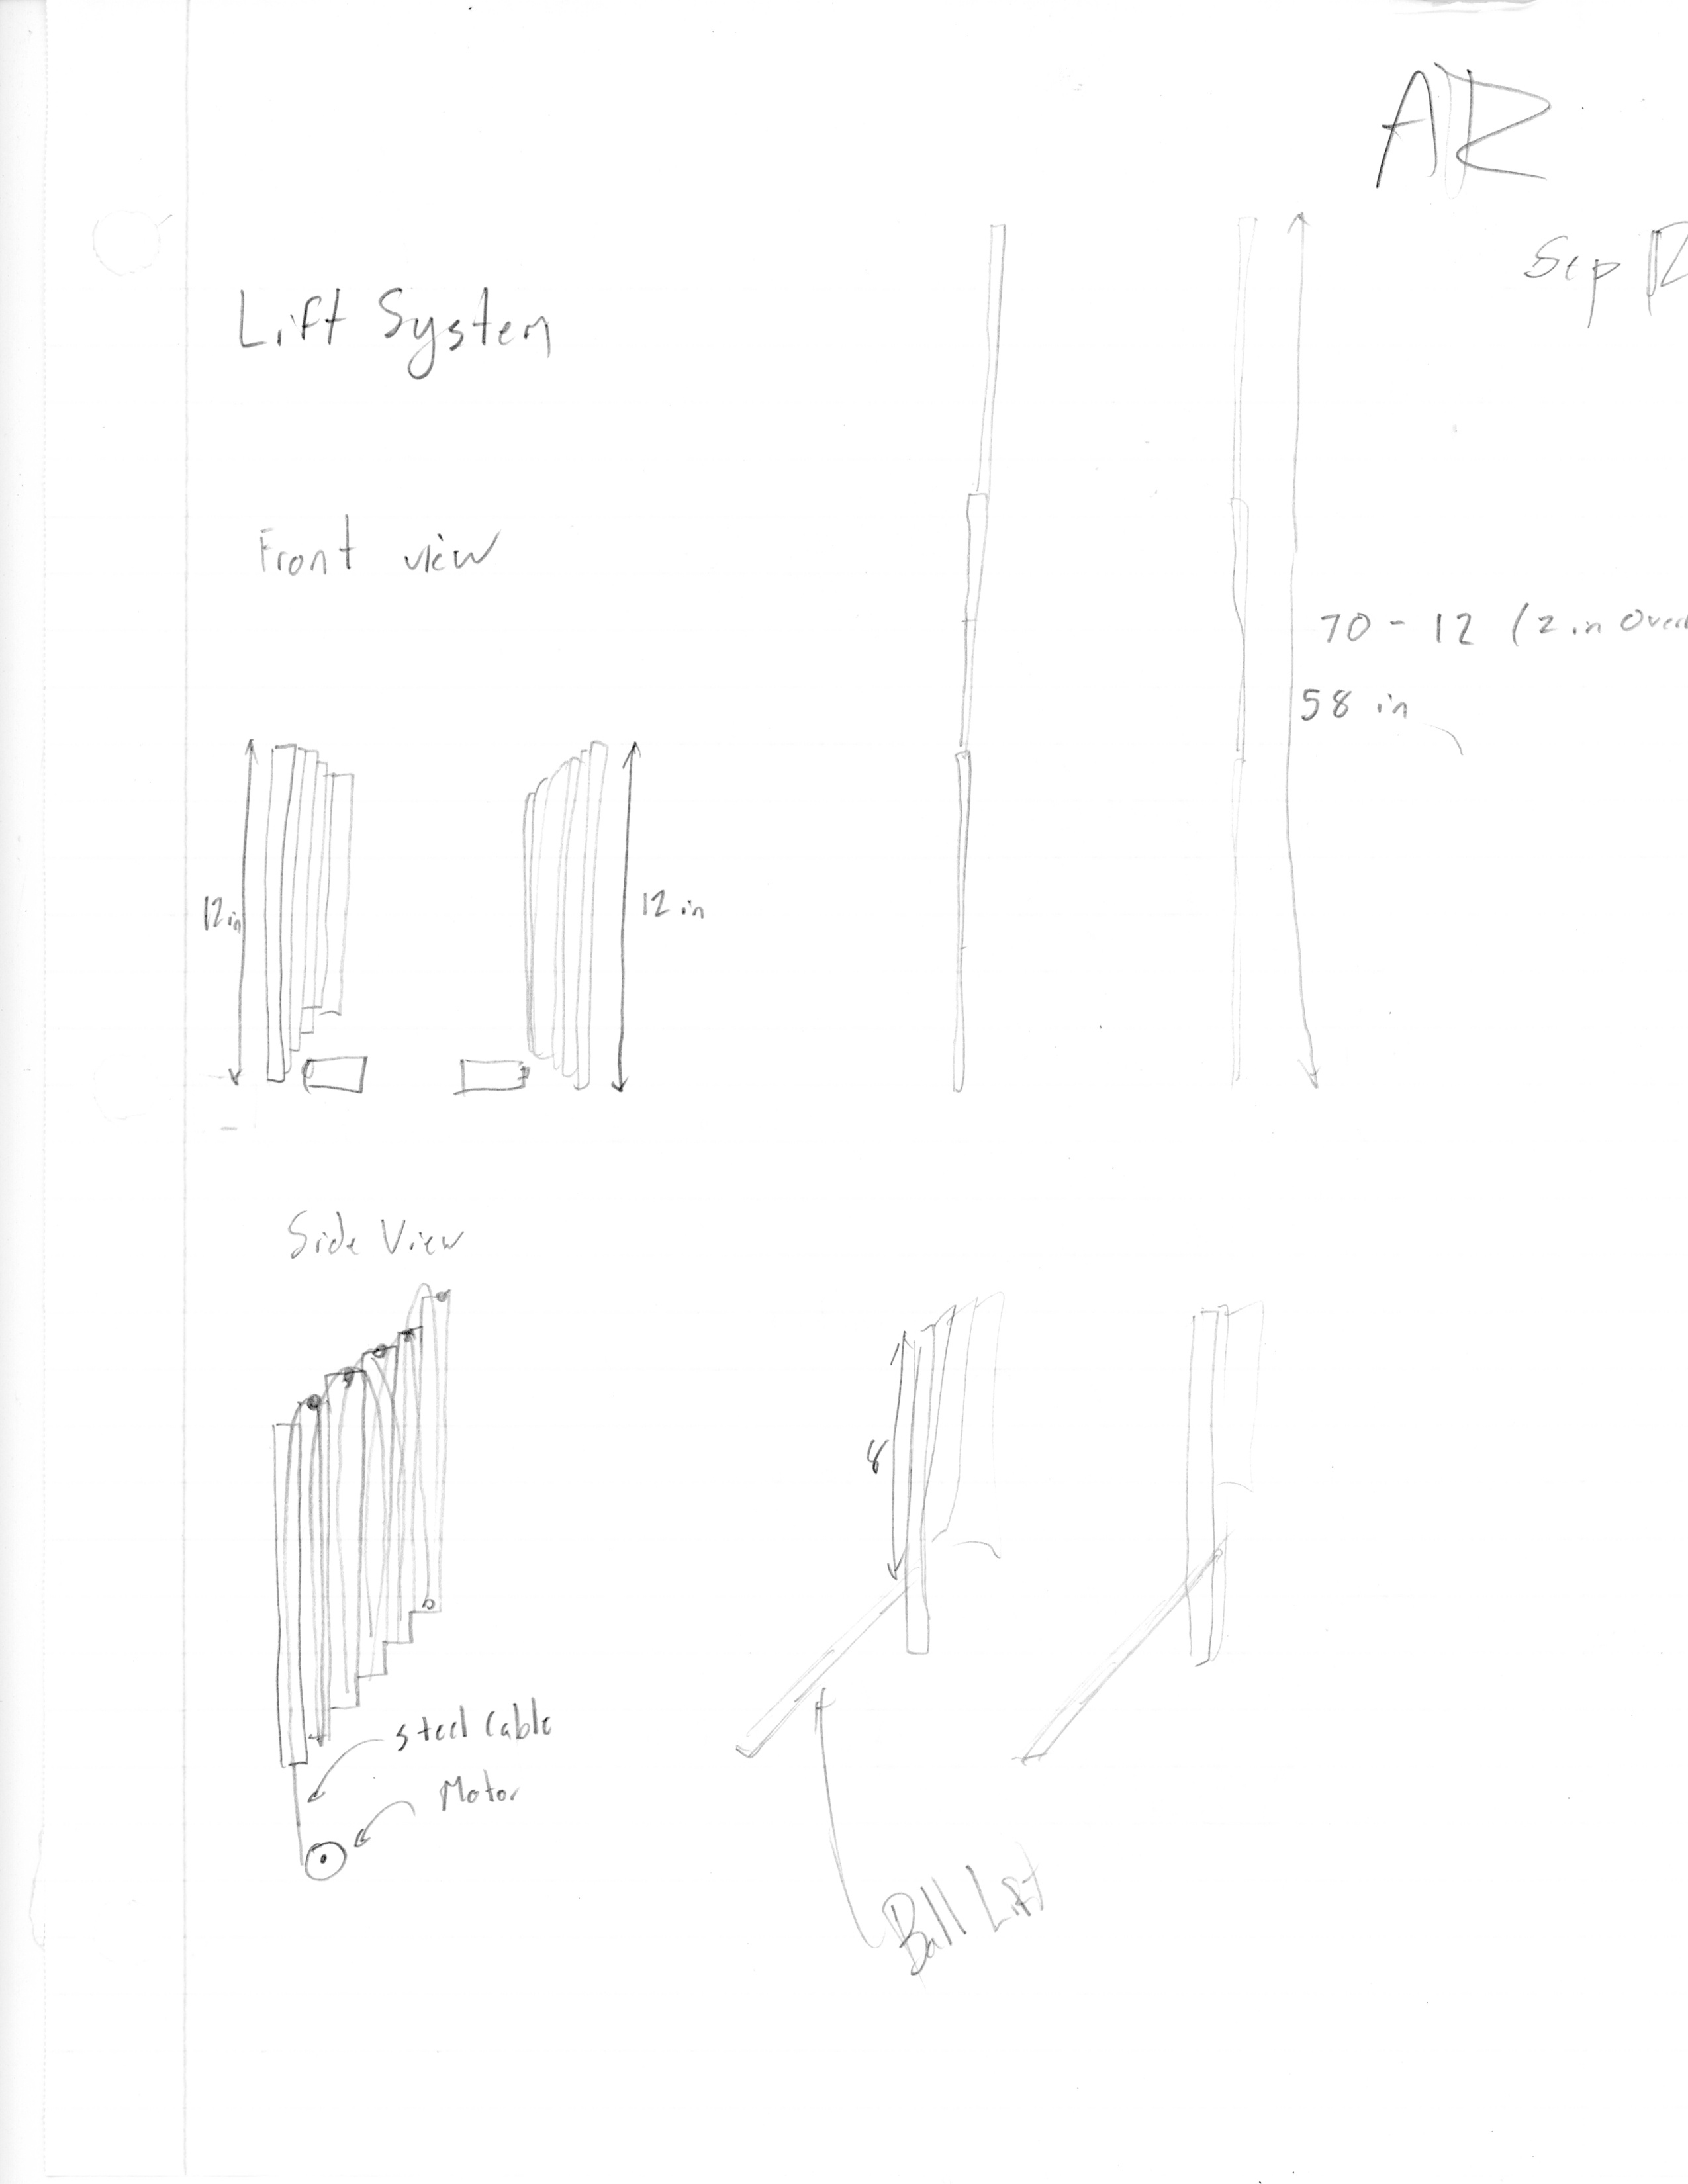 AR
Sep 12
Lift System
Front view
70 - 12 (2 in Over
58 in
12 in
12 in
Side View
8
Steel Cable
Motor
Ball Lift